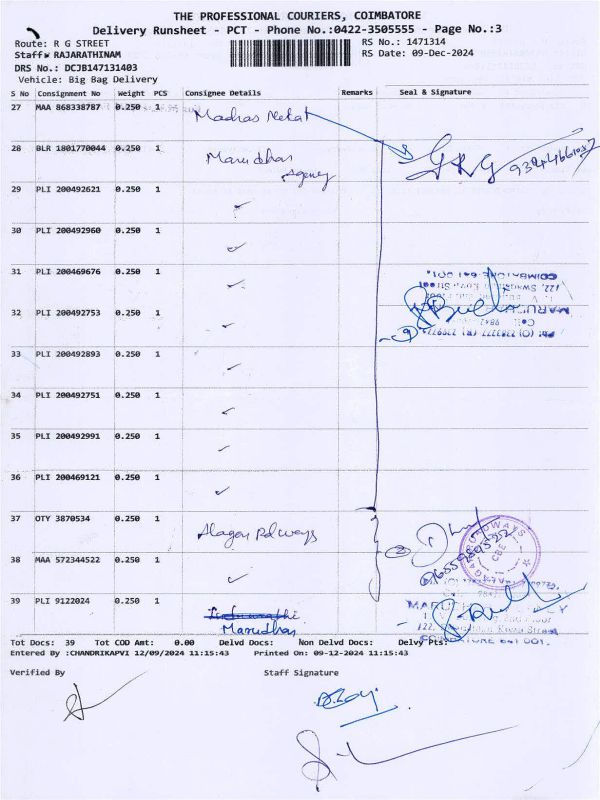 THE PROFESSIONAL COURIERS, COIMBATORE
Delivery Runsheet - PCT - Phone No.:0422-3505555 - Page No.:3
Route: R G STREET
RS No.: 1471314
Staff: RAJARATHINAM
RS Date: 09-Dec-2024
DRS No.: DCJB147131403
Vehicle: Big Bag Delivery
S No Consignment No Weight PCS Consignee Details Remarks Seal & Signature
27 MAA 868338787 0.250 1 Madras
28 BLR 1801770044 0.250 1 Marudhar
Agency
GRG
29 PLI 200492621 0.250 1 ✓
30 PLI 200492960 0.250 1 ✓
31 PLI 200469676 0.250 1 ✓
COIMBATORE 641 001.
32 PLI 200492753 0.250 1 ✓
33 PLI 200492893 0.250 1 ✓
34 PLI 200492751 0.250 1 ✓
35 PLI 200492991 0.250 1 ✓
36 PLI 200469121 0.250 1 ✓
37 OTY 3870534 0.250 1 Alagar
38 MAA 572344522 0.250 1 ✓
CBE
39 PLI 9122024 0.250 1
Marudhar
122,
COIMBATORE 641 001.
Tot Docs: 39 Tot COD Amt: 0.00 Delvd Docs: Non Delvd Docs: Delvy Pts:
Entered By :CHANDRIKAPVI 12/09/2024 11:15:43 Printed On: 09-12-2024 11:15:43
Verified By Staff Signature